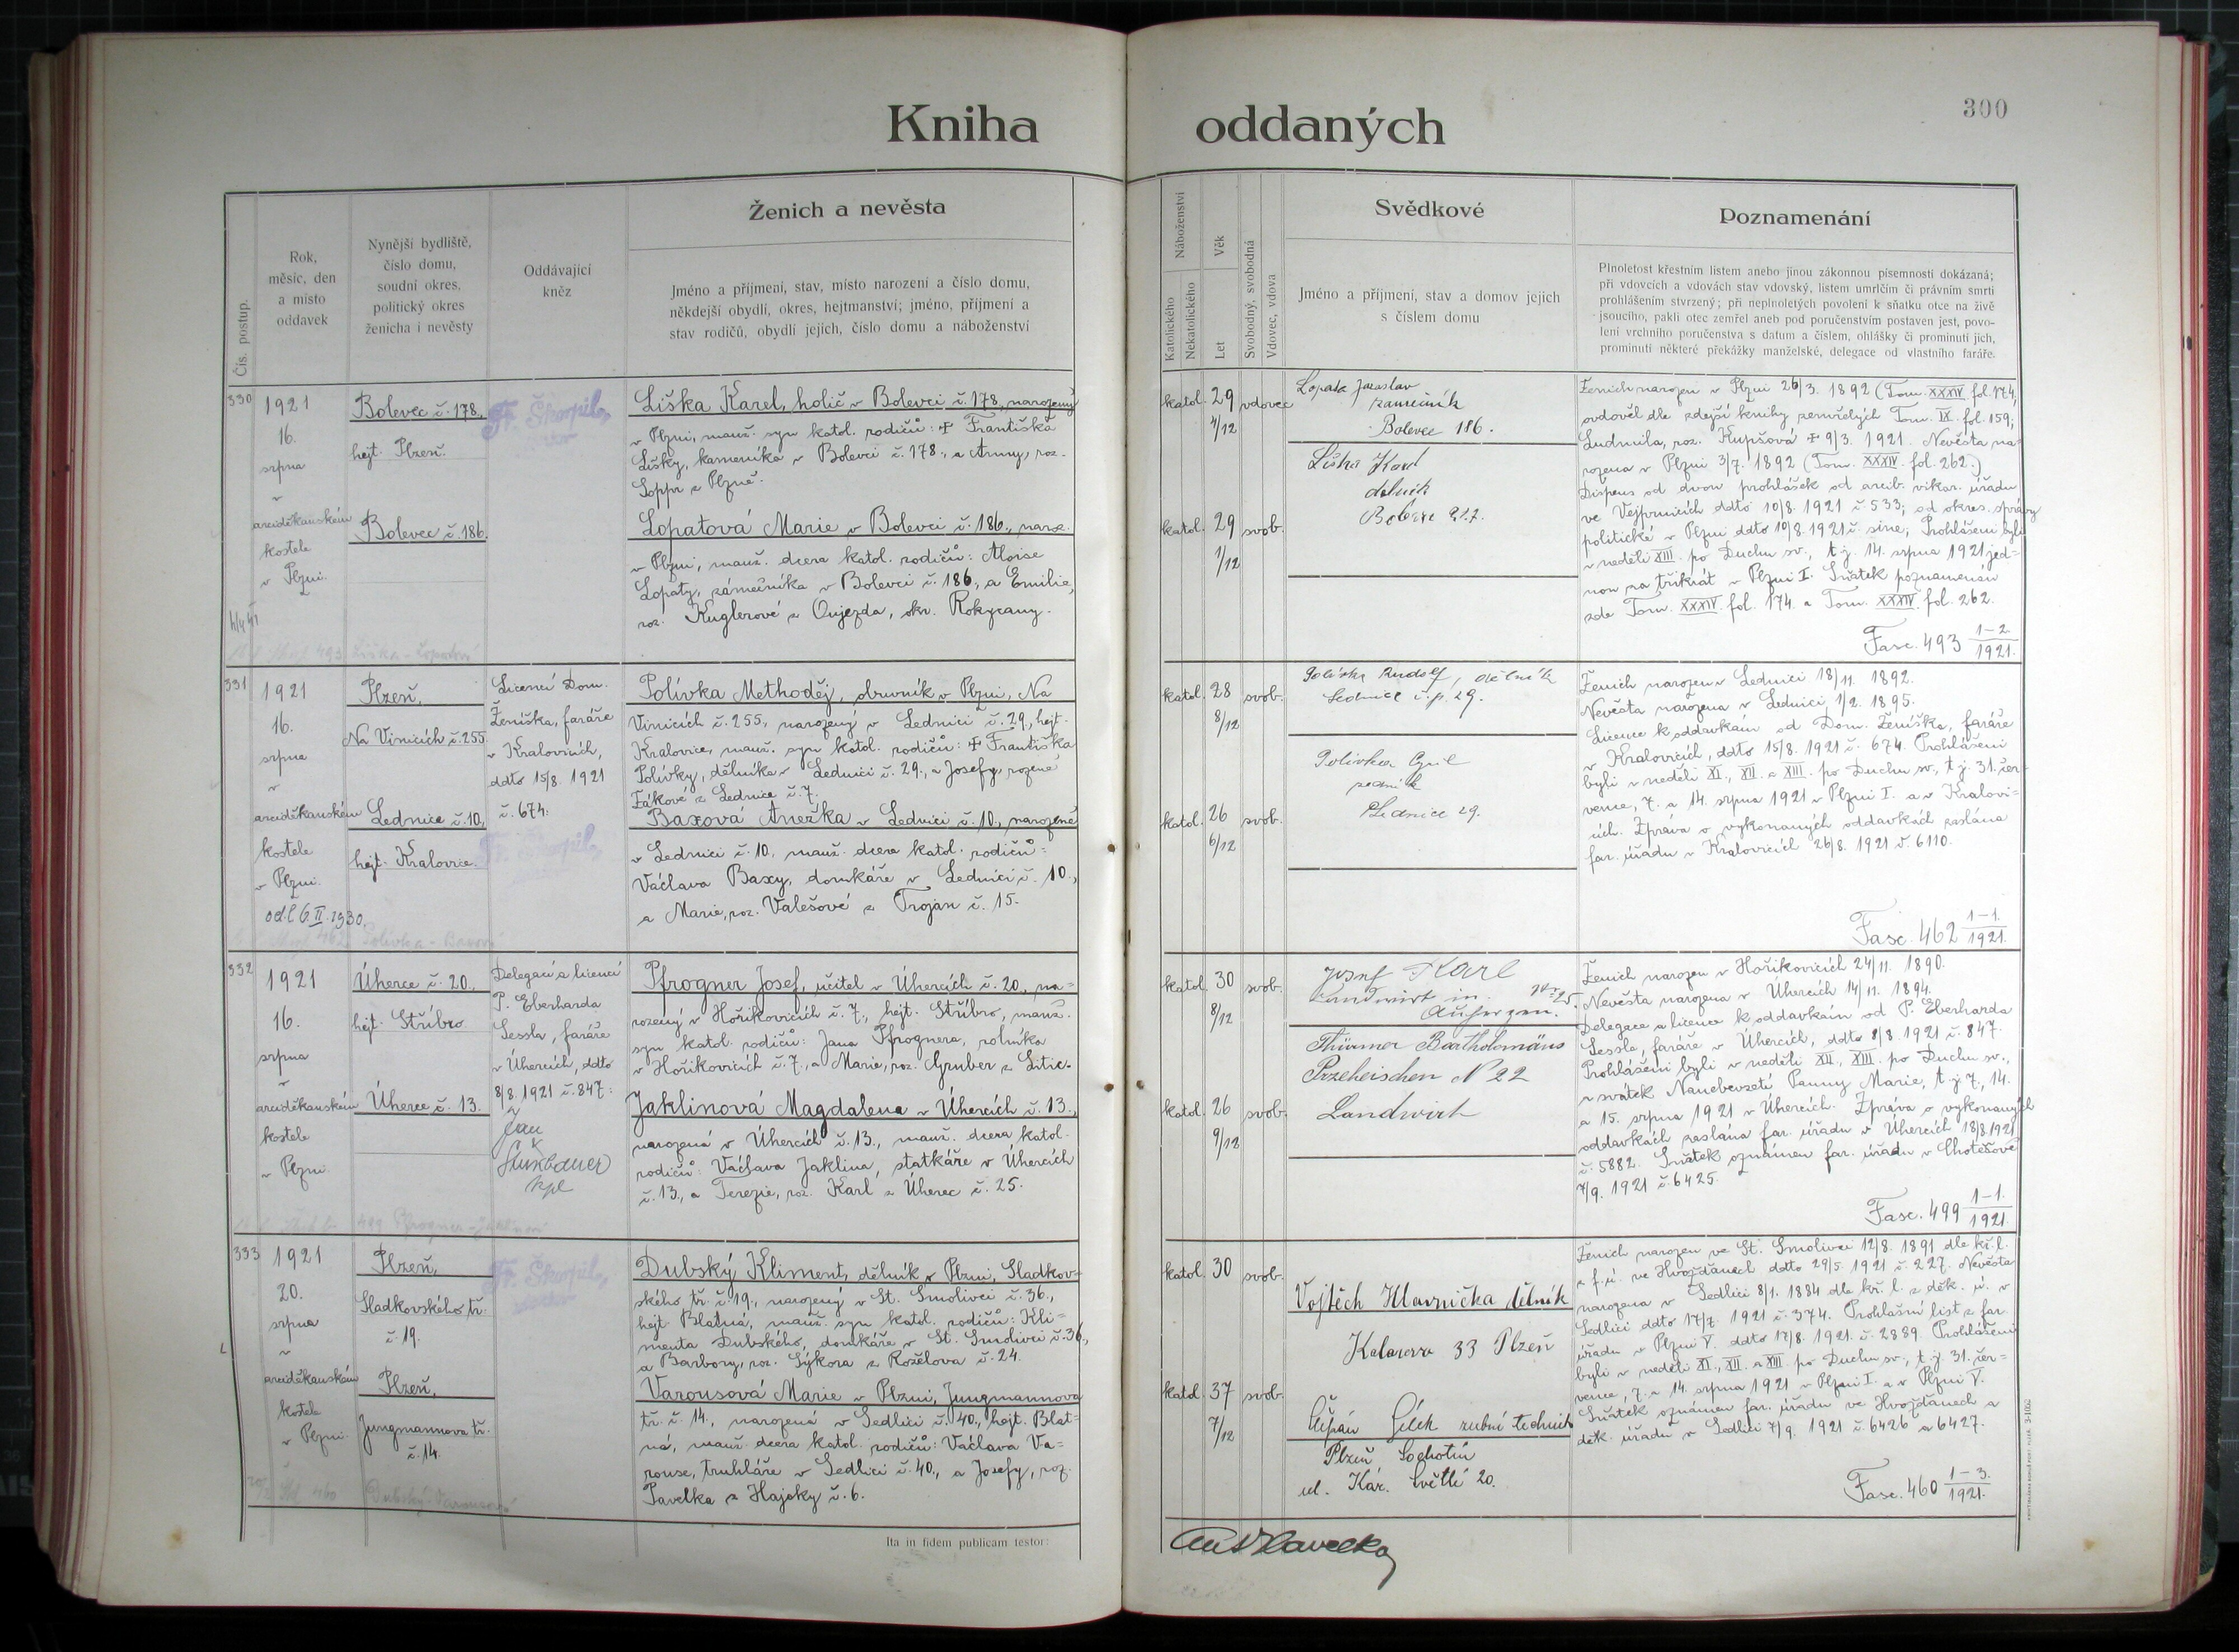 Kniha oddaných
300
Čís. postup.
Rok,
měsíc, den
a místo
oddavek
Nynější bydliště,
číslo domu,
soudní okres,
politický okres
ženicha i nevěsty
Oddávající
kněz
Ženich a nevěsta
Jméno a příjmení, stav, místo narození a číslo domu,
někdejší obydlí, okres, hejtmanství; jméno, příjmení a
stav rodičů, obydlí jejich, číslo domu a náboženství
Náboženství
Katolického
Nekatolického
Věk
Let
Svobodný, svobodná
Vdovec, vdova
Svědkové
Jméno a příjmení, stav a domov jejich
s číslem domu
Poznamenání
Plnoletost křestním listem anebo jinou zákonnou písemností dokázaná;
při vdovcích a vdovách stav vdovský, listem úmrlčím či právním smrti
prohlášením stvrzený; při neplnoletých povolení k sňatku otce na živě
jsoucího, pakli otec zemřel aneb pod poručenstvím postaven jest, povo-
lení vrchního poručenstva s datum a číslem, ohlášky či prominutí jich,
prominutí některé překážky manželské, delegace od vlastního faráře.
330
1921
16.
srpna
v
arciděkanském
kostele
v Plzni.
Bolevec č. 178.,
hejt. Plzeň.
Bolevec č. 186.
Fr. Škorpil,
Liška Karel, holič v Bolevci č. 178., narozený
v Plzni, manž. syn katol. rodičů: + Františka
Lišky, kameníka v Bolevci č. 178., a Anny, roz.
Soppr z Plzně.
Lopatová Marie v Bolevci č. 186., naroz.
v Plzni, manž. dcera katol. rodičů: Aloise
Lopaty, zámečníka v Bolevci č. 186., a Emilie,
roz. Kuglerové z Oujezda, okr. Rokycany.
katol. 29 vdovec
4/12
katol. 29 svob.
1/12
Lopata Jaroslav
zámečník
Bolevec 186.
Liška Karel
dělník
Ženich narozen v Plzni 26/3. 1892 (Tom. XXXIV. fol. 174,
ovdověl dle zdejší knihy zemřelých Tom. IX. fol. 159;
Ludmila, roz. Kupšová + 9/3. 1921. Nevěsta na-
rozena v Plzni 3/7. 1892 (Tom. XXXIV. fol. 262.)
Dispens od dvou prohlášek od arcib. vikar. úřadu
ve Vejprnicích ddto 10/8. 1921 č. 533; od okres. správy
politické v Plzni ddto 10/8. 1921 č. sine; Prohlášeni byli
v neděli XIII. po Duchu sv., t. j. 14. srpna 1921 jed-
nou za třikrát v Plzni I. Sňatek poznamenán
zde Tom. XXXIV. fol. 174. a Tom. XXXIV. fol. 262.
Fasc. 493 1-2./1921.
331
1921
16.
srpna
v
arciděkanském
kostele
v Plzni.
odd. 6. II. 1930.
Plzeň,
Na Vinicích č. 255.
Lednice č. 10.,
hejt. Kralovice.
Licencí Dom.
Ženíška, faráře
v Kralovicích,
ddto 15/8. 1921
č. 674.
Fr. Škorpil,
Polívka Methoděj, obuvník v Plzni, Na
Vinicích č. 255., narozený v Lednici č. 29., hejt.
Kralovice, manž. syn katol. rodičů: + Františka
Polívky, dělníka v Lednici č. 29., a Josefy, rozené
Žákové z Lednice č. 7.
Baxová Anežka v Lednici č. 10., narozené
v Lednici č. 10., manž. dcera katol. rodičů:
Václava Baxy, domkáře v Lednici č. 10.,
a Marie, roz. Valešové z Trojan č. 15.
katol. 28 svob.
8/12
katol. 26 svob.
6/12
Polívka Rudolf, dělník
Lednice č. p. 29.
Polívka Cyril
Lednice 29.
Ženich narozen v Lednici 18/11. 1892.
Nevěsta narozena v Lednici 1/2. 1895.
Licence k oddavkám od Dom. Ženíška, faráře
v Kralovicích, ddto 15/8. 1921 č. 674. Prohlášeni
byli v neděli XI., XII. a XIII. po Duchu sv., t. j. 31. čer-
vence, 7. a 14. srpna 1921 v Plzni I. a v Kralovi-
cích. Zpráva o vykonaných oddavkách zaslána
far. úřadu v Kralovicích 26/8. 1921 č. 6110.
Fasc. 462 1-1./1921.
332
1921
16.
srpna
v
arciděkanském
kostele
v Plzni.
Úherce č. 20.,
hejt. Stříbro
Úherce č. 13.
Delegací a licencí
P. Eberharda
Sessla, faráře
v Úhercích, ddto
8/8. 1921 č. 847.
Jan
kpl
Pfrogner Josef, učitel v Úhercích č. 20., na-
rozený v Hoříkovicích č. 7., hejt. Stříbro, manž.
syn katol. rodičů: Jana Pfrognera, rolníka
v Hoříkovicích č. 7., a Marie, roz. Gruber z Litic.
Jaklinová Magdalena v Úhercích č. 13.,
narozená v Úhercích č. 13., manž. dcera katol.
rodičů: Václava Jaklina, statkáře v Úhercích
č. 13., a Terezie, roz. Karl z Úherec č. 25.
katol. 30 svob.
8/12
katol. 26 svob.
9/12
Josef Karl
Landwirt in
Thürmer Bartholomäus
Przeheischen N 22
Landwirth
Ženich narozen v Hoříkovicích 24/11. 1890.
Nevěsta narozena v Úhercích 14/11. 1894.
Delegace a licence k oddavkám od P. Eberharda
Sessla, faráře v Úhercích, ddto 8/8. 1921 č. 847.
Prohlášeni byli v neděli XII., XIII. po Duchu sv.,
v svátek Nanebevzetí Panny Marie, t. j. 7., 14.
a 15. srpna 1921 v Úhercích. Zpráva o vykonaných
oddavkách zaslána far. úřadu v Úhercích 18/8. 1921
č. 5882. Sňatek oznámen far. úřadu v Chotěšově
7/9. 1921 č. 6425.
Fasc. 499 1-1./1921.
333
1921
20.
srpna
v
arciděkanském
kostele
v Plzni.
Plzeň,
Sladkovského tř.
č. 19.
Plzeň,
Jungmannova tř.
č. 14.
Fr. Škorpil,
Dubský Kliment, dělník v Plzni, Sladkov-
ského tř. č. 19., narozený v St. Smolivci č. 36.,
hejt. Blatná, manž. syn katol. rodičů: Kli-
menta Dubského, domkáře v St. Smolivci č. 36.,
a Barbory, roz. Sýkora z Roželova č. 24.
Varousová Marie v Plzni, Jungmannova
tř. č. 14., narozená v Sedlici č. 40., hejt. Blat-
ná, manž. dcera katol. rodičů: Václava Va-
rouse, truhláře v Sedlici č. 40., a Josefy, roz.
Pavelka z Hajsky č. 6.
katol. 30 svob.
katol. 37 svob.
7/12
Vojtěch Hlavnička dělník
33 Plzeň
Štěpán zubní technik
Plzeň Lochotín
ul. Kar. Světlé 20.
Ženich narozen ve St. Smolivci 12/8. 1891 dle kř. l.
z f. ú. ve Hvožďanech ddto 29/5. 1921 č. 227. Nevěsta
narozena v Sedlici 8/1. 1884 dle kř. l. z děk. ú. v
Sedlici ddto 17/7. 1921 č. 374. Prohlašní list z far.
úřadu v Plzni V. ddto 17/8. 1921. č. 2889. Prohlášeni
byli v neděli XI., XII. a XIII. po Duchu sv., t. j. 31. čer-
vence, 7. a 14. srpna 1921 v Plzni I. a v Plzni V.
Sňatek oznámen far. úřadu ve Hvožďanech a
děk. úřadu v Sedlici 7/9. 1921 č. 6426 a 6427.
Fasc. 460 1-3./1921.
Ita in fidem publicam testor: